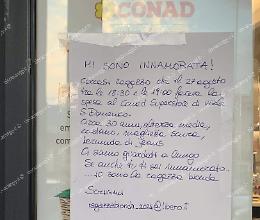 CONAD
MI SONO INNAMORATA!
Cercasi ragazzo che il 27 agosto
tra le 18:30 e le 19:00 faceva la
spesa al Conad Superstore di viale
S. Domenico.
Circa 30 anni, altezza media,
castano, maglietta scura,
bermuda di jeans
Ci siamo guardati a lungo
Se anche tu ti sei innamorato
io sono la ragazza bionda
Scrivimi